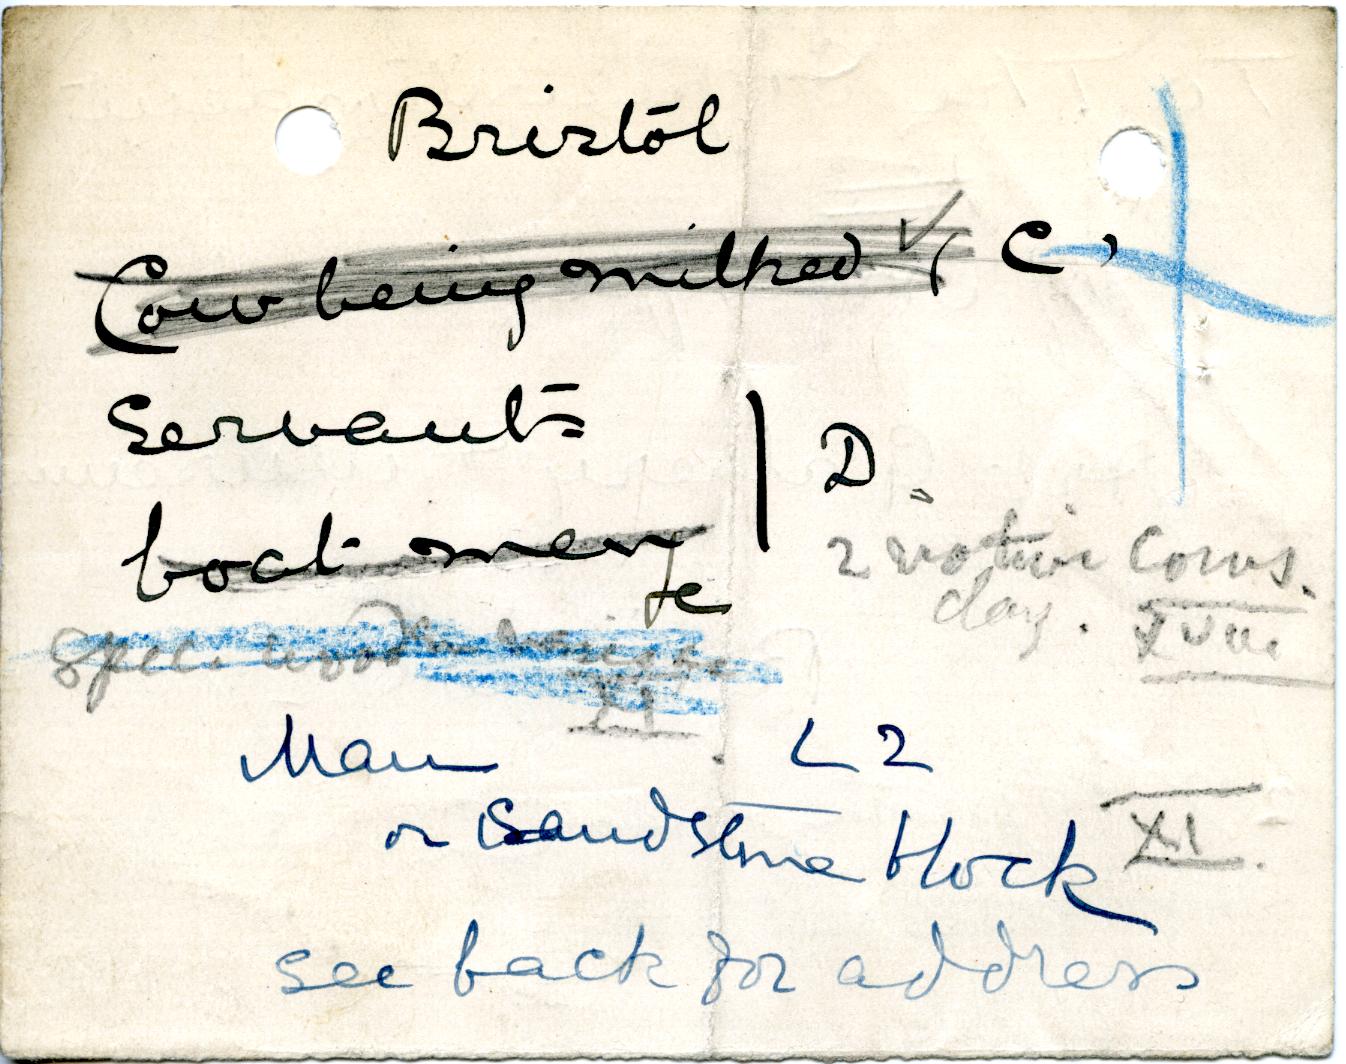 Bristol
Cow being milked ✓ C,
Servants
D.
boat men
2 votive cows.
clay. XVIII
Spec wooden
XI
Man L 2
or Sandstone block XI.
see back for address